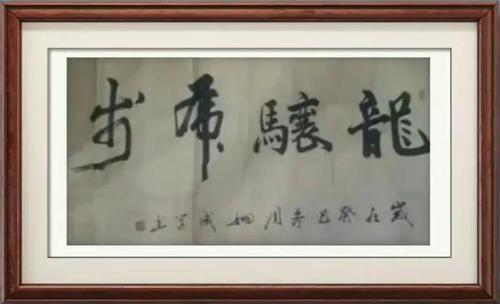 龍驤虎步
歲在癸巳冬